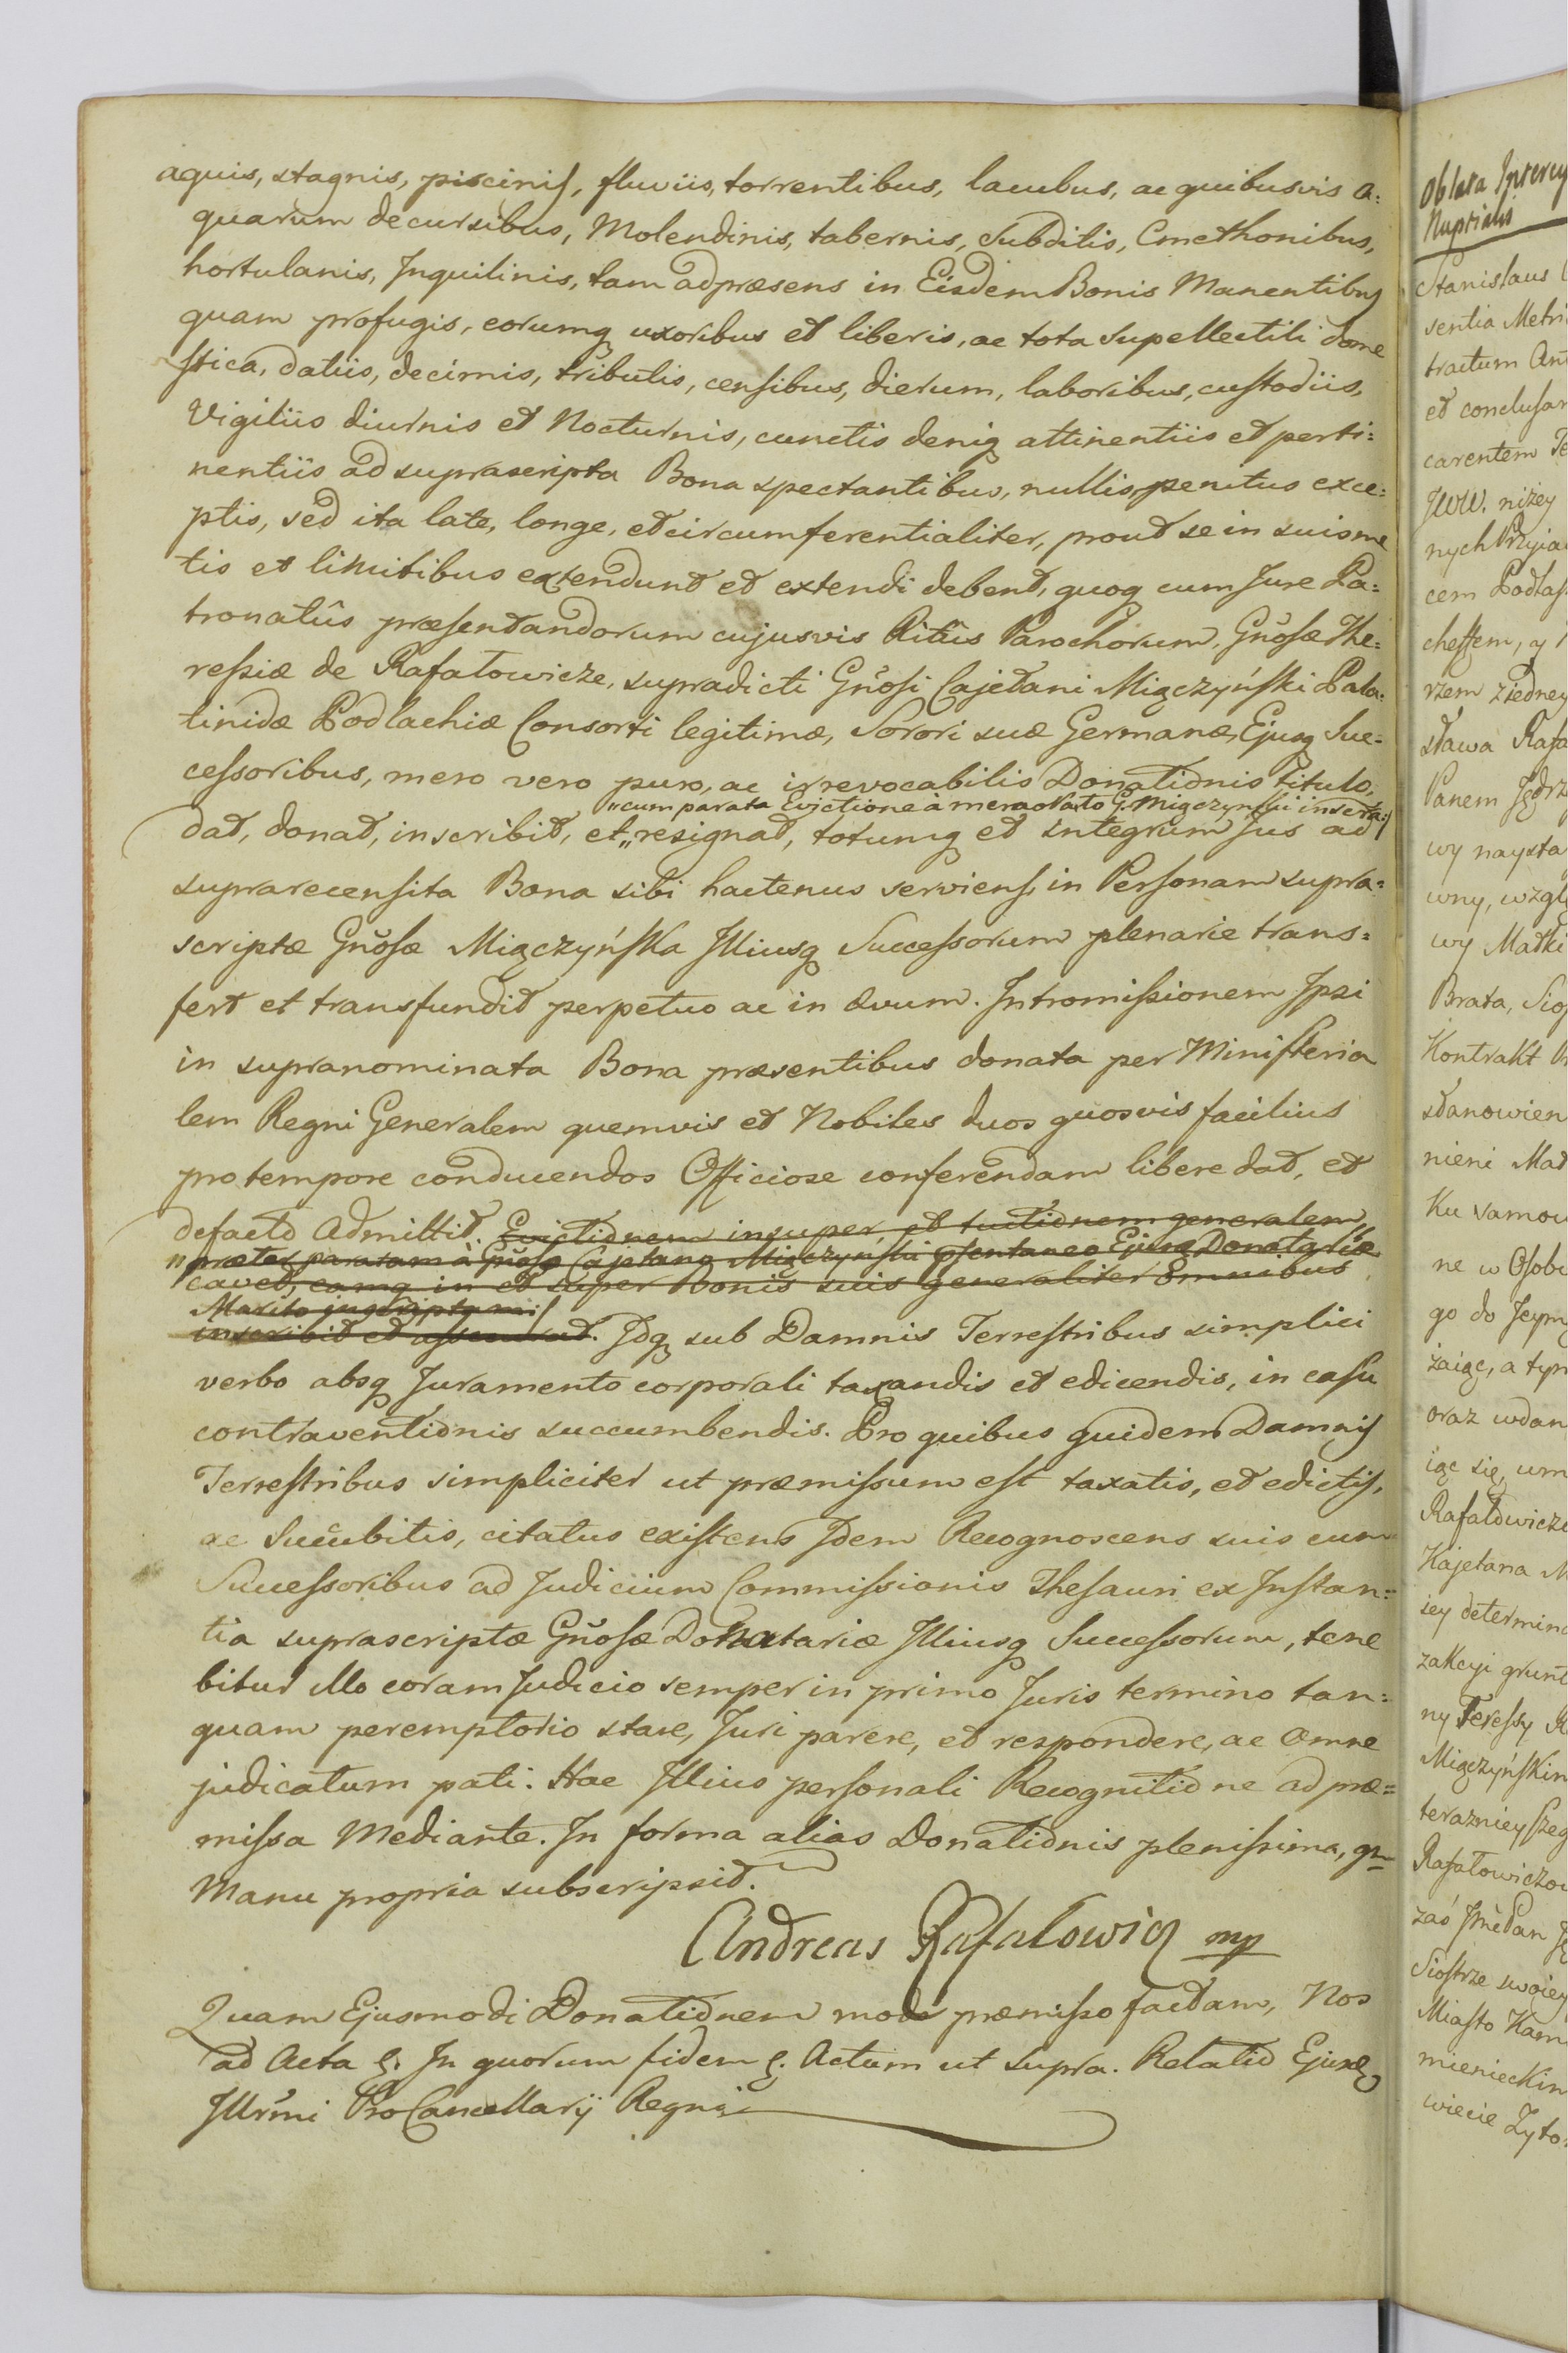 aquis, stagnis, piscinis, fluviis, torrentibus, lacubus, ac quibusvis a:
quarum decursibus, Molendinis, tabernis, Subditis, Cmethonibus,
hortulanis, Inquilinis, tam ad præsens in Eisdem Bonis Manentibus
quam profugis, eorumq uxoribus et liberis, ac tota Supellectili dome
stica, datiis, decimis, tributis, censibus, dierum, laboribus, custodiis,
Vigiliis diurnis et Nocturnis, cunctis deniq attinentiis et perti:
nentiis ad suprascripta Bona spectantibus, nullis penitus exce:
ptis, sed ita late, longe, et circumferentialiter, prout se in suis me
tis et limitibus extendunt et extendi debent, quoq cum Jure Pa:
tronatûs præsentandorum cujusvis Ritûs Parochorum, Gnosæ The:
ressiæ de Rafałowicze, supradicti Gnosi Cajetani Miączyński Pala:
tinidæ Podlachiæ Consorti legitimæ, Sorori suæ Germanæ, Ejusq Suc-
cessoribus, mero vero puro, ac irrevocabilis Donationis titulo,
„cum parata Evictione à memorato G. Miączyński inserta:/
dat, donat, inscribit, et „ resignat, totumq et integrum Jus ad
suprarecensita Bona sibi hactenus serviens, in Personam supra=
scriptæ Gnosæ Miączyńska Illiusq Successorum plenarie trans=
fert et transfundit perpetuo ac in ævum. Intromissionem Ipsi
in supranominata Bona præsentibus donata per Ministeria
lem Regni Generalem quemvis et Nobiles duos quosvis facilius
pro tempore conducendos Officiose conferendam libere dat, et
defacto Admittit. Evictionem insuper, et tuitionem generalem,
præter paratam à Gnoso Cajetano Miączyński psentaneo Ejusq Donatariæ
cavet, eamq in et super Bonis suis generaliter Omnibus
Marito
inscribit et assecurat. Idq sub Damnis Terrestribus simplici
verbo absq Juramento corporali taxandis et edicendis, in casu
contraventionis succumbendis. Pro quibus quidem Damnis
Terrestribus simpliciter ut præmissum est taxatis, et edictis,
ac Succubitis, citatus existens Idem Recognoscens suis cum
Successoribus ad Judicium Commissionis Thesauri ex Instan=
tia suprascriptæ Gnosæ Donatariæ Illiusq Successorum, tene
bitur Illo coram Judicio semper in primo Juris termino tan=
quam peremptorio stare, Juri parere, et respondere, ac Omne
judicatum pati. Hac Illius personali Recognitione ad præ=
missa Mediante. In forma alias Donationis plenissima, qm
Manu propria subscripsit.
Andreas Rafałowicz mp
Quam Ejusmodi Donationem modo præmisso factam, Nos
ad Acta &. In quorum fidem &. Actum ut supra. Relatio Ejusd
Illrmi ProCancellarij Regni
Oblata
Nuptialis
Stanislaus
sentia Metri
tractum Ant
et conclusam
carentem Te
JWW. niżey
nych Przyia
cem Podlas
rzem ziedney
sława Rafa
Panem Jędrz
wy naysta
wny, wzglę
wy Matki
Brata, Sio
Kontrakt
stanowien
nieni Mał
Ku samou
ne w Osobi
go do Jeym
żaiąc, a tym
oraz wdan
iąc się, um
Rafałowicz
Kajetana M
iey determin
zakcyi grunt
ny Teressy R
Miączyńskim
terazniey szeg
Rafałowiczow
zaś Jmć Pan
Siostrze swoiey
Miasto Kam
mienieckim
wiecie Żyto